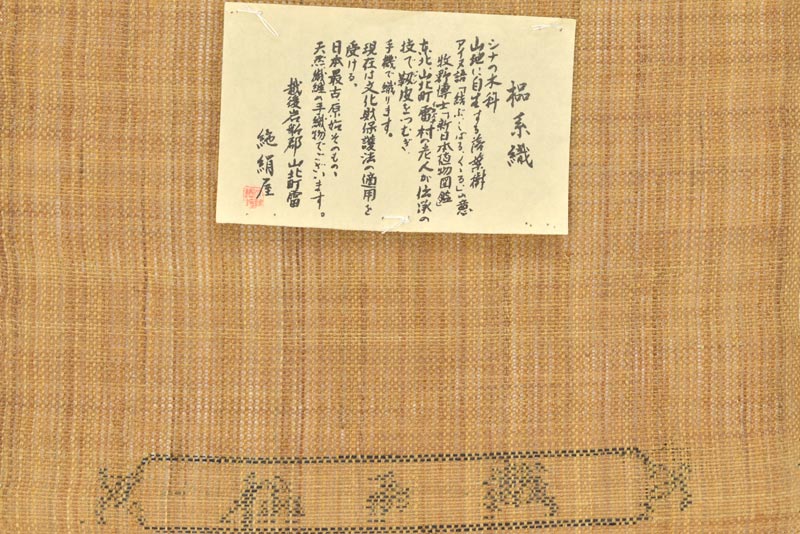 榀糸織
シナの木科
山地に自生する落葉樹
アイヌ語「結ぶ、しばる、くくる」の意
牧野博士「新日本植物図鑑」
東北、山北町雷村の老人が伝承の
技で靱皮をつむぎ、
手機で織ります。
現在は文化財保護法の適用を
受ける。
日本最古、原始そのもの、
天然繊維の手織物でございます。
越後岩船郡 山北町雷
絁絹屋
榀布織